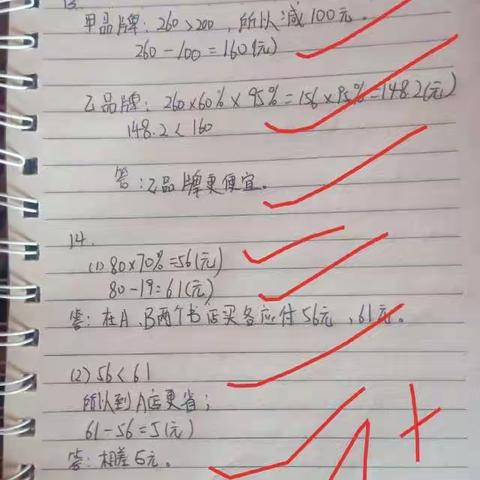 13
甲品牌：260>200，所以减100元。
260-100=160(元)
乙品牌：260×60%×95%=156×95%=148.2(元)
148.2<160
答：乙品牌更便宜。
14.
(1) 80×70%=56(元)
80-19=61(元)
答：在A、B两个书店买各应付56元，61元。
(2) 56<61
所以到A店更省；
61-56=5(元)
答：相差5元。